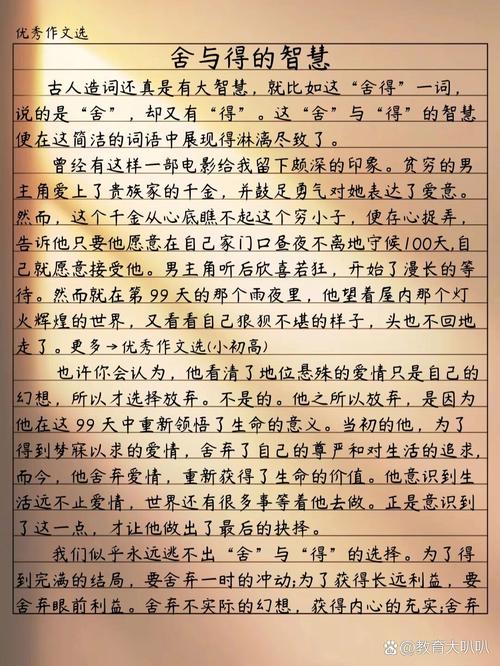 优秀作文选
舍与得的智慧
古人造词还真是有大智慧，就比如这“舍得”一词，
说的是“舍”，却又有“得”。这“舍”与“得”的智慧
便在这简洁的词语中展现得淋漓尽致了。
曾经有这样一部电影给我留下颇深的印象。贫穷的男
主角爱上了贵族家的千金，并鼓足勇气对她表达了爱意。
然而，这个千金从心底瞧不起这个穷小子，便存心捉弄，
告诉他只要他愿意在自己家门口昼夜不离地守候100天,自
己就愿意接受他。男主角听后欣喜若狂，开始了漫长的等
待。然而就在第99天的那个雨夜里，他望着屋内那个灯
火辉煌的世界，又看看自己狼狈不堪的样子，头也不回地
走了。更多→优秀作文选(小初高)
也许你会认为，他看清了地位悬殊的爱情只是自己的
幻想，所以才选择放弃。不是的。他之所以放弃，是因为
他在这99天中重新领悟了生命的意义。当初的他，为了
得到梦寐以求的爱情，舍弃了自己的尊严和对生活的追求,
而今，他舍弃爱情，重新获得了生命的价值。他意识到生
活远不止爱情，世界还有很多事等着他去做。正是意识到
了这一点，才让他做出了最后的抉择。
我们似乎永远逃不出“舍”与“得”的选择。为了得
到完满的结局，要舍弃一时的冲动;为了获得长远利益，要
舍弃眼前利益。舍弃不实际的幻想，获得内心的充实;舍弃
@教育大叭叭